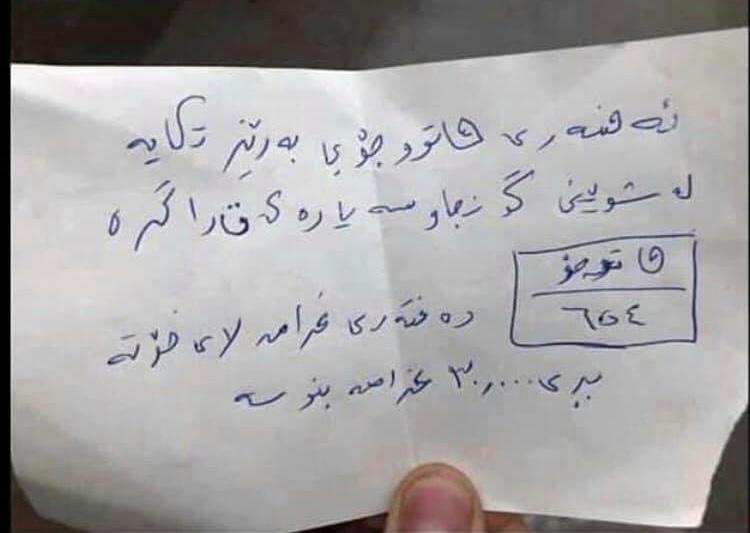 ئەفسەری هاتووچۆی بەرێز تکایە
لە شوینی گونجاو سەیارەی قاراگرە
هاتوچۆ
٦٥٤
دەفتەری غرامە لای خۆتە
بڕی ٣٠,٠٠٠ غرامە بنوسە